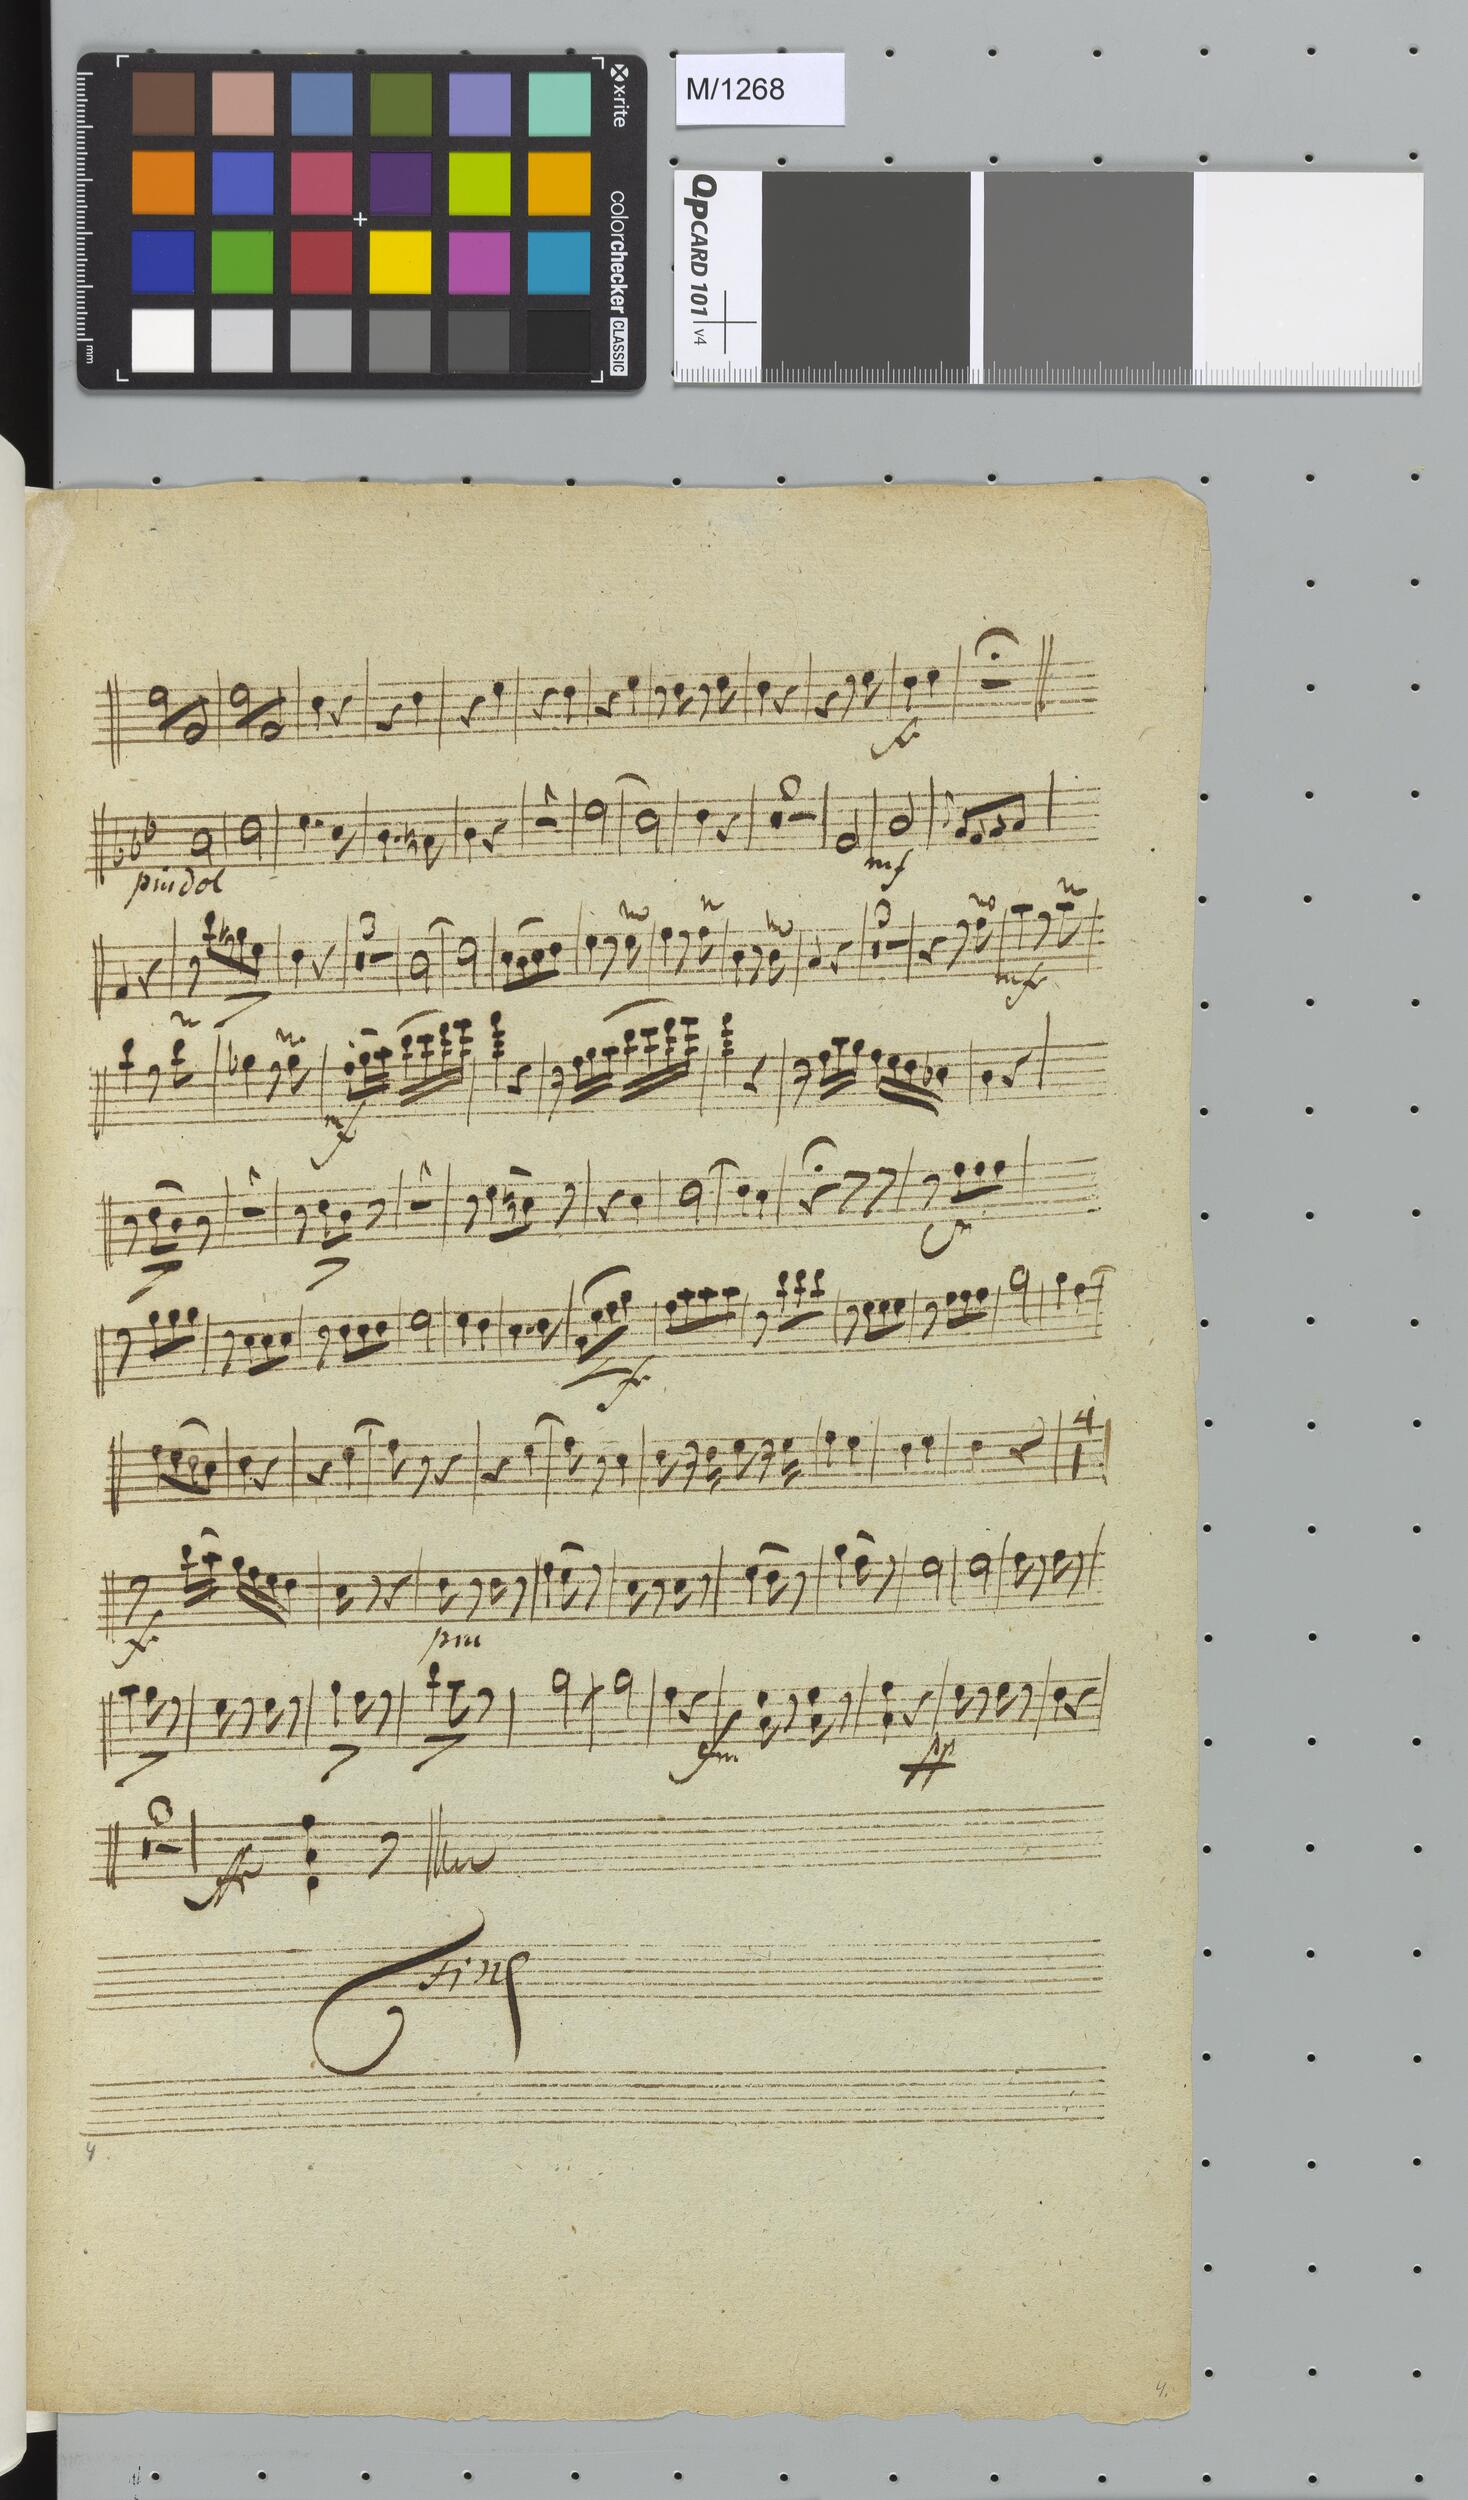 x·rite
colorchecker CLASSIC
mm
M/1268
QPCARD 101 v4
f.
piu dol
mf
3
3
mfr
mf
fr.
4
f.
piu
pp
ffr
Fine
4.
4.